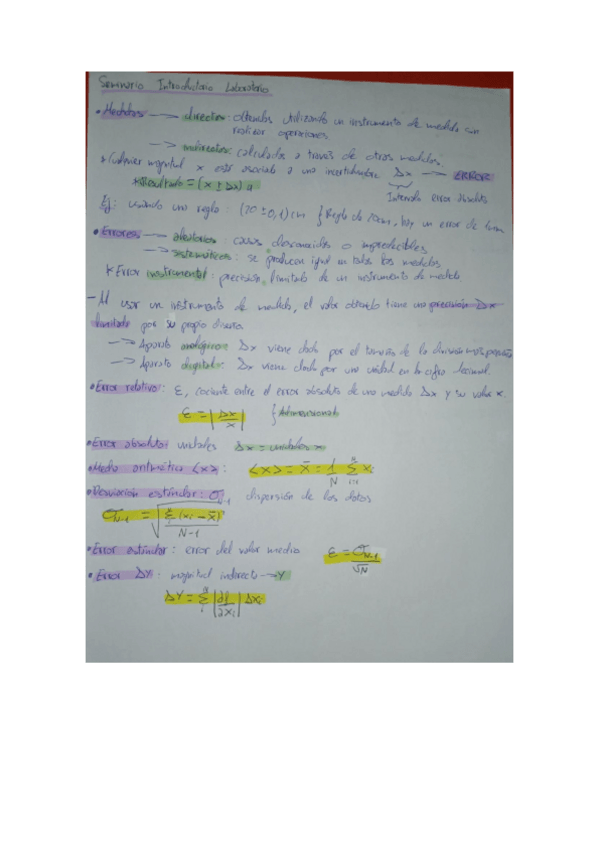 Seminario Introductorio Laboratorio
• Medidas → directas: obtenidas utilizando un instrumento de medida sin
realizar operaciones.
→ indirectas: calculadas a través de otras medidas.
* Cualquier magnitud x está asociada a una incertidumbre Δx → ERROR
* Resultado = (x ± Δx) u
Intervalo error absoluto
Ej: usando una regla: (20 ± 0,1) cm { Regla de 20cm, hay un error de 1mm
• Errores → aleatorios: causas desconocidas o impredecibles
→ sistemáticos: se producen igual en todas las medidas
* Error instrumental: precisión limitada de un instrumento de medida
- Al usar un instrumento de medida, el valor obtenido tiene una precisión Δx
limitada por su propio diseño
→ Aparato analógico: Δx viene dado por el tamaño de la división más pequeña
→ Aparato digital: Δx viene dado por una unidad en la cifra decimal.
• Error relativo: ε, cociente entre el error absoluto de una medida Δx y su valor x.
ε = |Δx/x| { Adimensional
• Error absoluto: unidades Δx = unidades x
• Media aritmética <x>: <x> = x̄ = 1/N Σ xi
• Desviación estándar: σN-1 dispersión de los datos
σN-1 = √(Σ(xi - x̄)/N-1)
• Error estándar: error del valor medio ε = σN-1/√N
• Error ΔY: magnitud indirecta → Y
ΔY = Σ |∂f/∂xi| Δxi